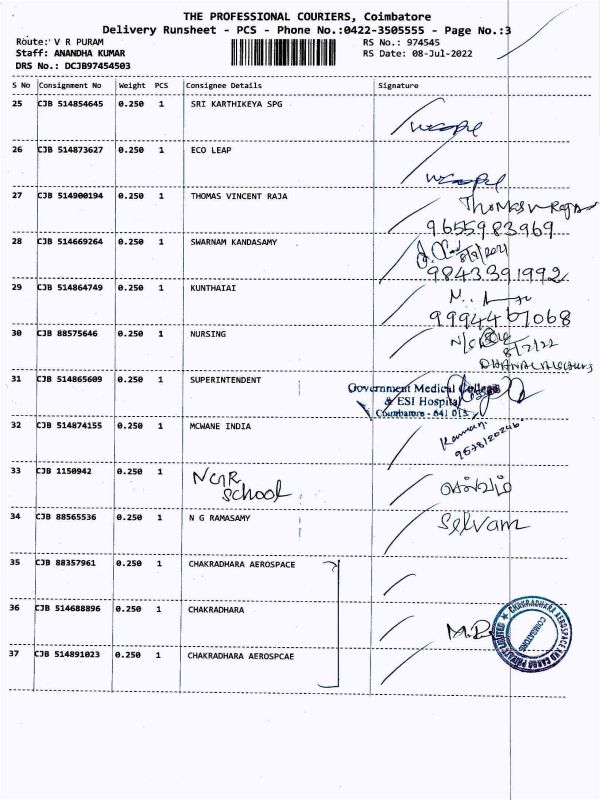 THE PROFESSIONAL COURIERS, Coimbatore
Delivery Runsheet - PCS - Phone No.:0422-3505555 - Page No.:3
Route: V R PURAM RS No.: 974545
Staff: ANANDHA KUMAR RS Date: 08-Jul-2022
DRS No.: DCJB97454503
S No Consignment No Weight PCS Consignee Details Signature
25 CJB 514854645 0.250 1 SRI KARTHIKEYA SPG
26 CJB 514873627 0.250 1 ECO LEAP
27 CJB 514900194 0.250 1 THOMAS VINCENT RAJA Thomas V Raja
9655983969
28 CJB 514669264 0.250 1 SWARNAM KANDASAMY
9843391992
29 CJB 514864749 0.250 1 KUNTHAIAI
9994467068
30 CJB 88575646 0.250 1 NURSING
8/7/22
31 CJB 514865609 0.250 1 SUPERINTENDENT Government Medical College
& ESI Hospital
Coimbatore - 641 015
32 CJB 514874155 0.250 1 MCWANE INDIA
9578120246
33 CJB 1150942 0.250 1 NGR School செல்வம்
34 CJB 88565536 0.250 1 N G RAMASAMY Selvam
35 CJB 88357961 0.250 1 CHAKRADHARA AEROSPACE
36 CJB 514688896 0.250 1 CHAKRADHARA
CHAKRADHARA AEROSPACE AND CARGO PRIVATE LIMITED
COIMBATORE
37 CJB 514891023 0.250 1 CHAKRADHARA AEROSPCAE